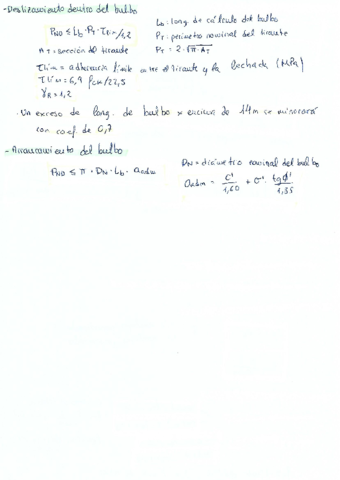 - Deslizamiento dentro del bulbo
PND ≤ Lb · PT · τlim/1,2
Lb: long. de cálculo del bulbo
PT: perímetro nominal del tirante
AT: sección del tirante
PT = 2·√π·AT
τlim = adherencia límite entre el tirante y la lechada (MPa)
τlim = 6,9 fck/22,5
γR = 1,2
· Un exceso de long. de bulbo x encima de 14m se minorará
con coef. de 0,7
- Arrancamiento del bulbo:
PND ≤ π · DN · Lb · aadm
DN = diámetro nominal del bulbo
aadm = c'/1,60 + σ' · tgϕ'/1,35